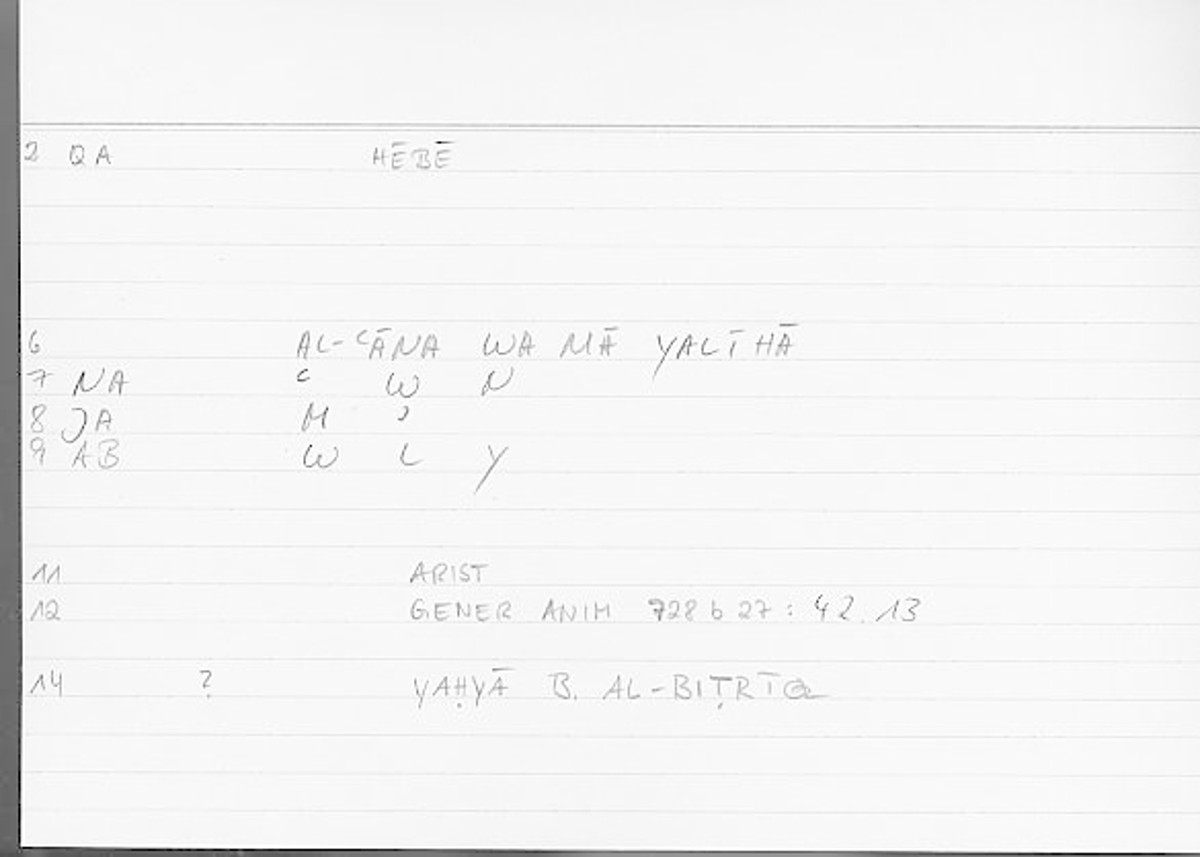 2 QA HĒBĒ
6 AL-ʿĀNA WA MĀ YALĪHĀ
7 NA ʿ W N
8 JA M ʾ
9 AB W L Y
11 ARIST
12 GENER ANIM 728 b 27 : 42.13
14 ? YAḤYĀ B. AL-BIṬRĪQ